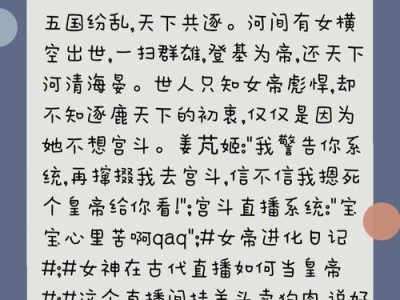 五国纷乱,天下共逐。河间有女横
空出世,一扫群雄,登基为帝,还天下
河清海晏。世人只知女帝彪悍,却
不知逐鹿天下的初衷,仅仅是因为
她不想宫斗。姜芃姬:"我警告你系
统,再撺掇我去宫斗,信不信我摁死
个皇帝给你看!";宫斗直播系统:"宝
宝心里苦啊qaq";#女帝进化日记
#;#女神在古代直播如何当皇帝
#;#这个直播间挂羊头卖狗肉,说好